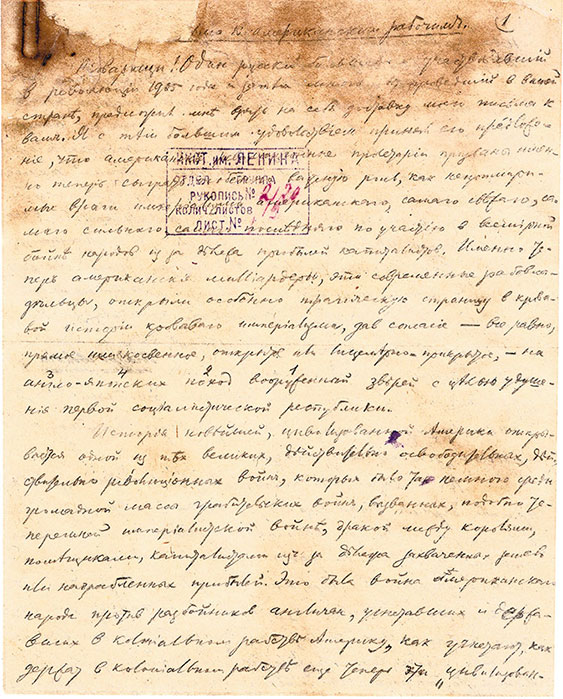 американским рабочим. 1
Товарищи! Один русский большевик, участвовавший
в революціи 1905 года и затем много проведший в вашей
странѣ, предложил мнѣ взять на себя доставку моего письма к
вам. Я с тѣм большим удовольствіем принял его предложе-
ніе, что американскіе пролетаріи призваны имен-
но теперь сыграть особенно важную роль, как непримири-
мые враги имперіализма американскаго, самаго свѣжаго, са-
маго сильнаго, самаго послѣдняго по участію в всемірной
бойнѣ народов из за дѣлежа прибылей капиталистов. Именно те-
перь американскіе милліардеры, эти современные рабовла-
дѣльцы, открыли особенно трагическую страницу в крова-
вой исторіи кроваваго имперіализма, дав согласіе — все равно,
прямое или косвенное, открытое или лицемѣрно-прикрытое, — на
англо-японских поход вооруженный звѣрей с цѣлью удуше-
нія первой соціалистической республики.
Исторія новѣйшей, цивилизованной Америки откры-
вается одной из тѣх великих, дѣйствительно освободительных, дѣй-
ствительно революціонных войн, которых было так немного среди
громадной массы грабительских войн, вызванных, подобно те-
перешней имперіалистской войнѣ, дракой между королями,
помѣщиками, капиталистами из за дѣлежа захваченных земель
или награбленных прибылей. Это была война американскаго
народа против разбойников англичан, угнетавших и держа-
вших в колоніальном рабствѣ Америку, как угнетают, как
держат в колоніальном рабствѣ еще теперь эти „цивилизован-
ИНСТ. им. ЛЕНИНА
ОТДЕЛ ЛЕНИНА
РУКОПИСЬ №
КОЛИЧ. ЛИСТОВ
ЛИСТ. №